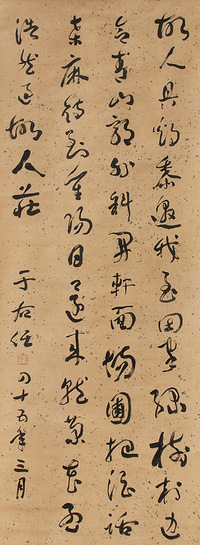 故人具鷄黍邀我至田家綠樹村邊
合青山郭外斜開軒面場圃把酒話
桑麻待到重陽日還來就菊花孟
浩然過故人莊
于右任
四十五年三月